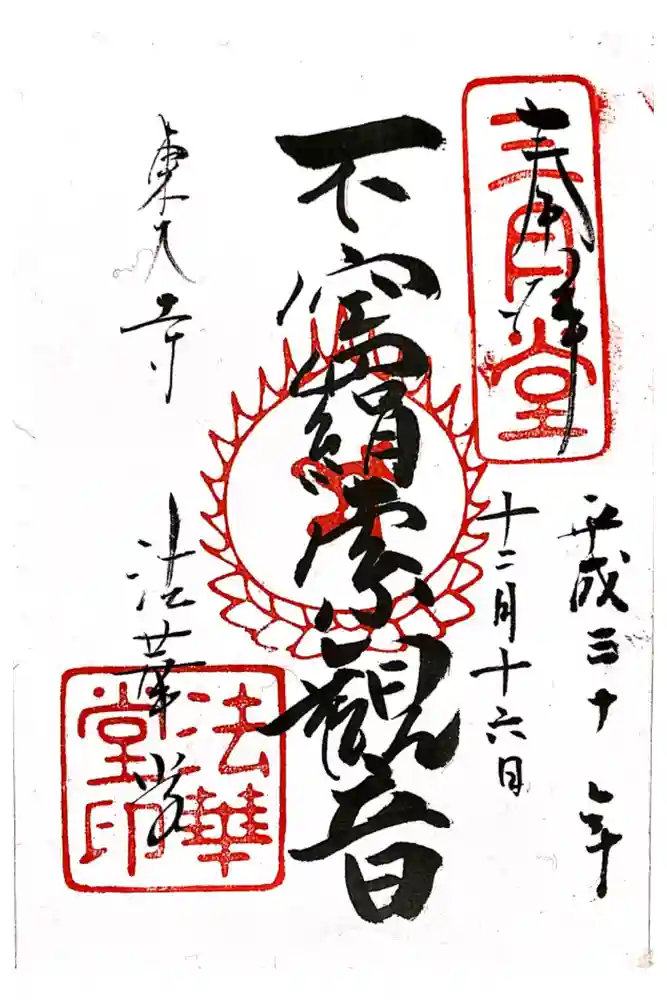 奉拝
三月堂
平成三十年
十二月十六日
不空羂索観音
東大寺
法華堂
法華
堂印